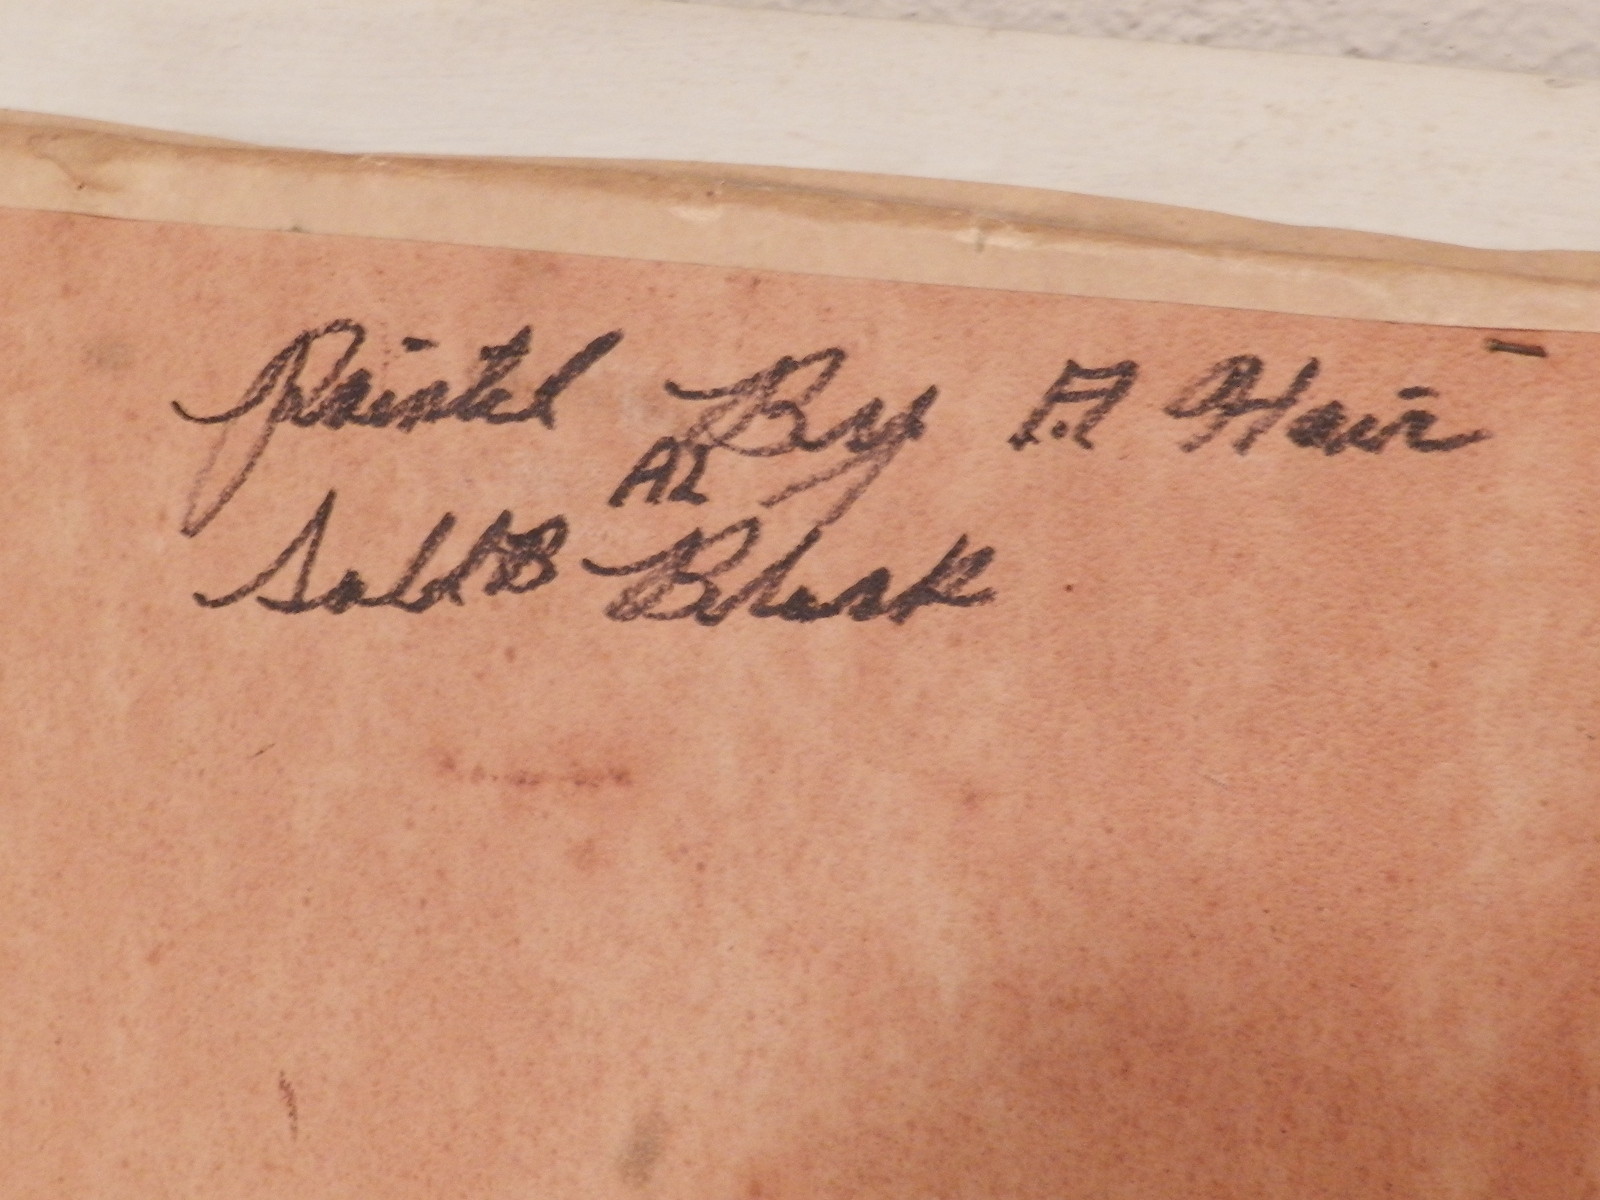 Painted By A Hair
AL
Sold B Black